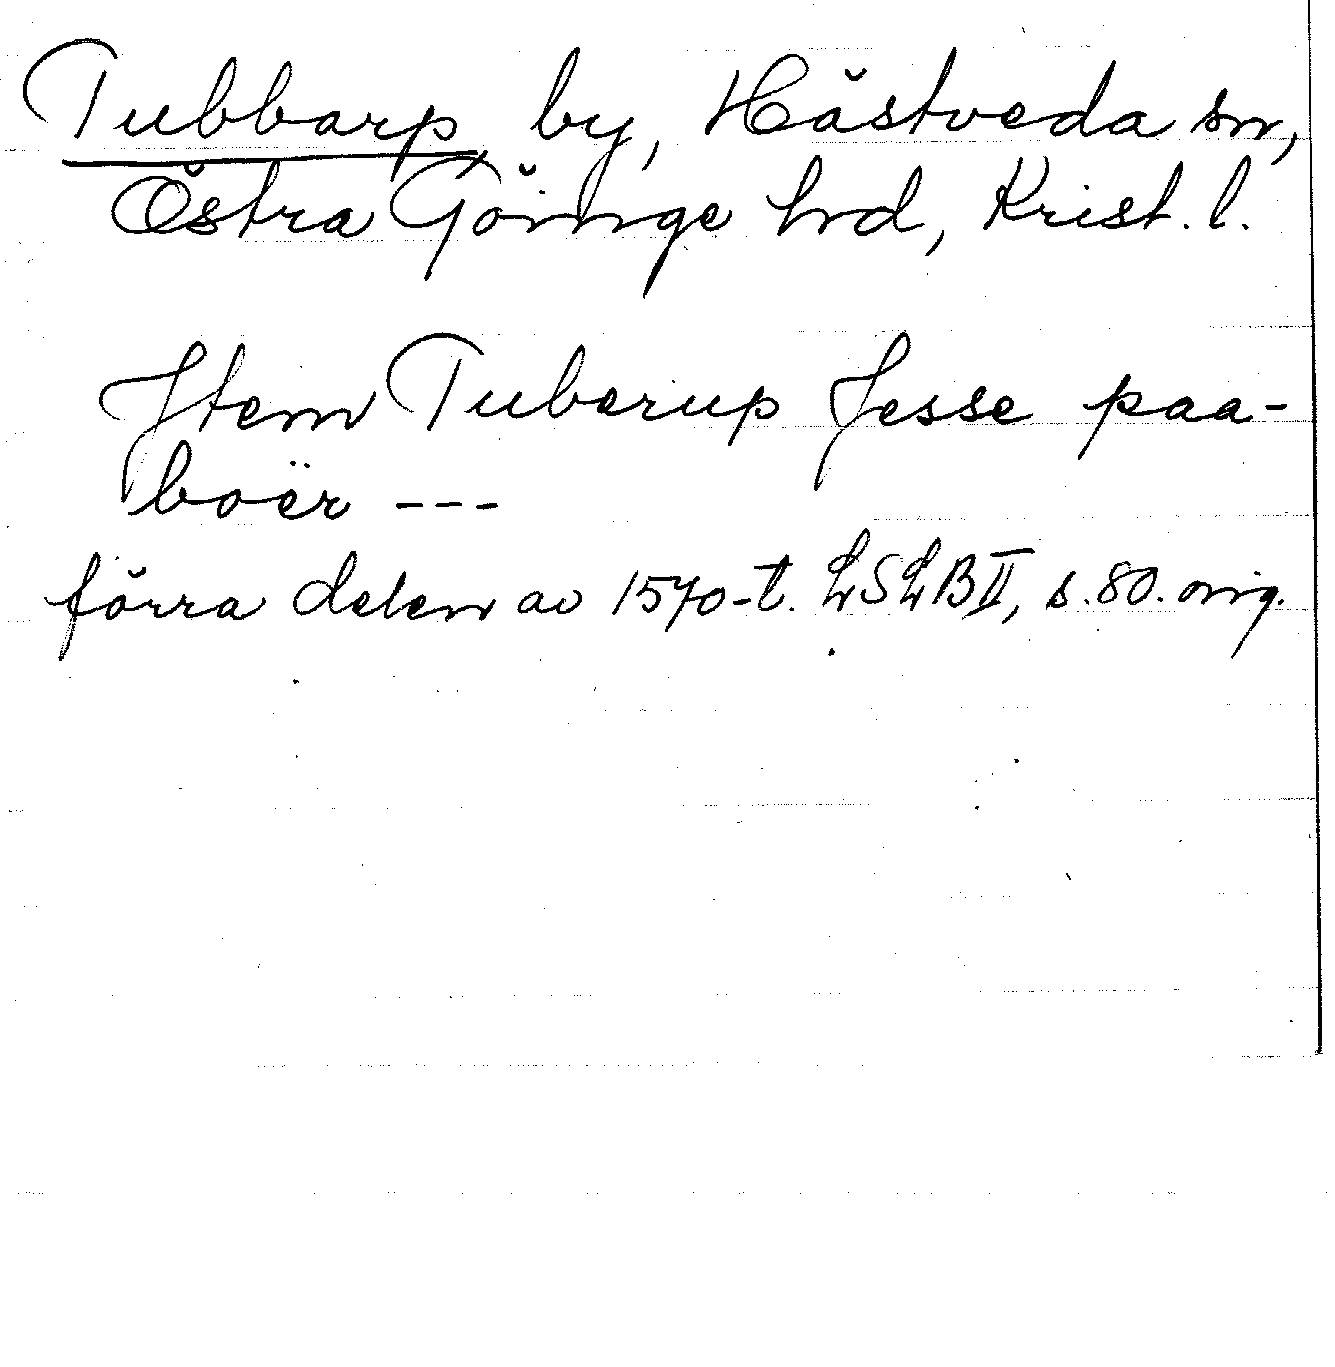 Tubbarp, by, Hästveda sn,
Östra Göinge hrd, Krist. l.
Item Tuberup Jesse paa-
boër ---
förra delen av 1570-t. LSLB II, s. 80. orig.